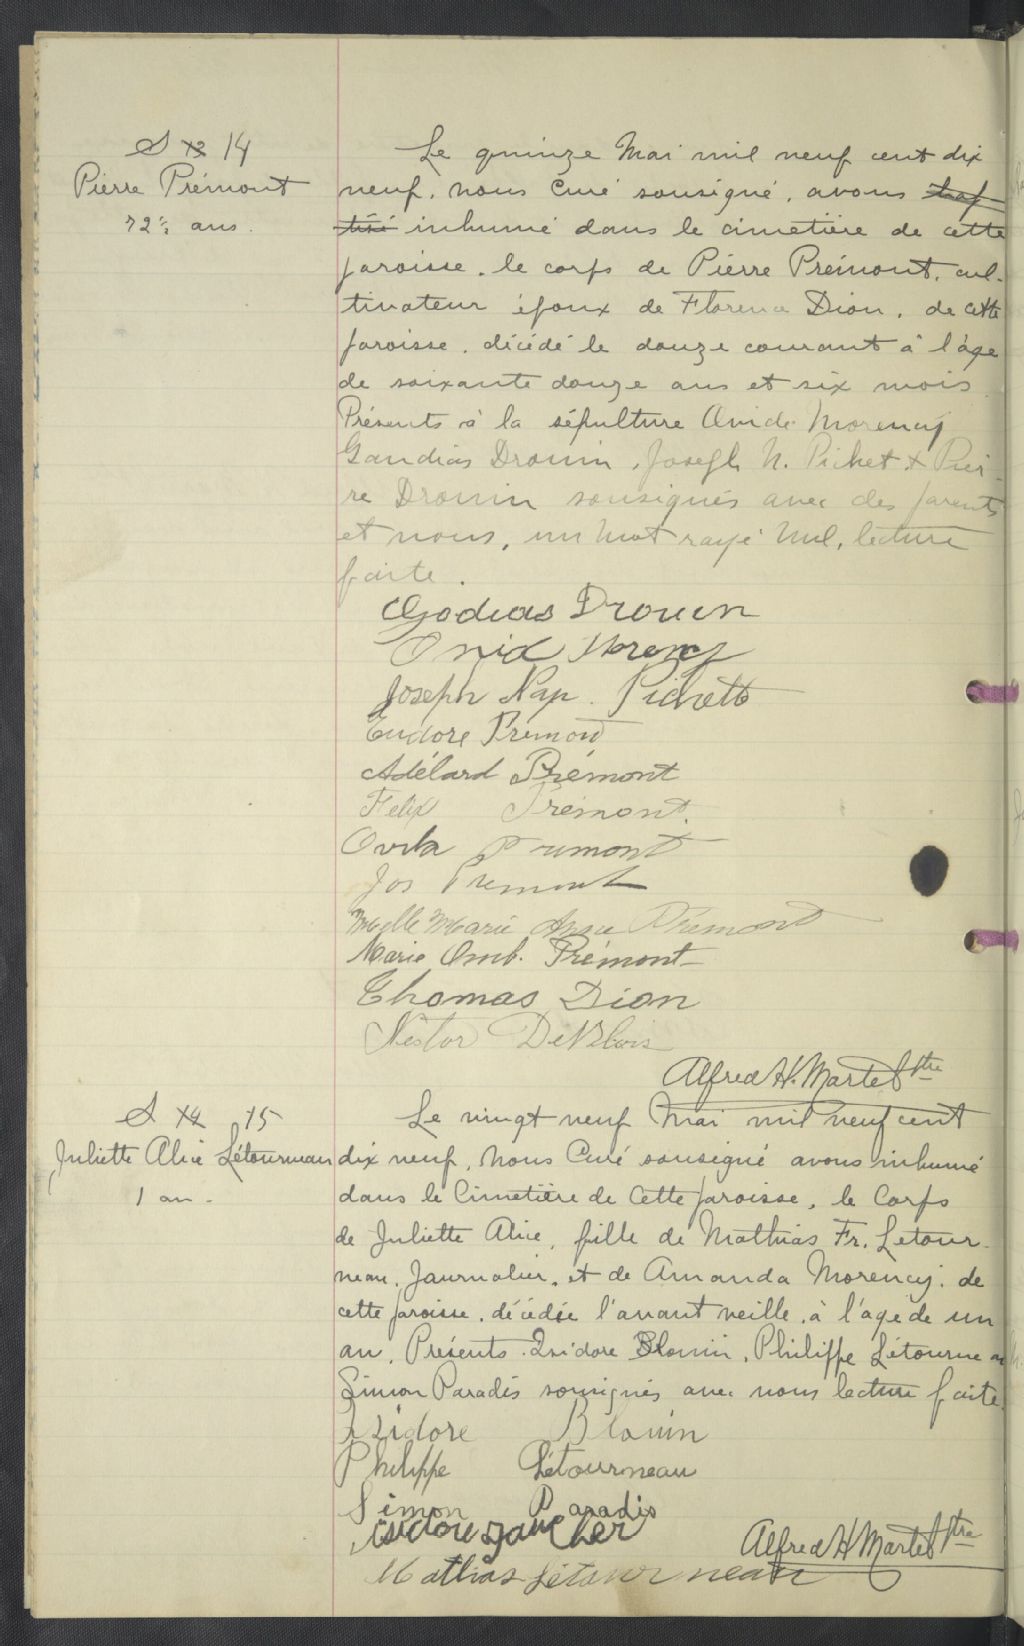 S 14
Pierre Prémont
72 1/2 ans.
Le quinze Mai mil neuf cent dix
neuf, nous Curé sousigné, avons bap-
tisé inhumé dans le cimetière de cette
paroisse, le corps de Pierre Prémont, cul-
tivateur époux de Florence Dion, de cette
paroisse, décédé le douze courant à l'âge
de soixante douze ans et six mois
Présents à la sépulture Ovide Morency
Gaudias Drouin, Joseph N. Pichet & Pier-
re Drouin sousignés avec des parents
et nous, un mot rayé nul, lecture
faite.
Godias Drouin
Ovid Morency
Joseph Nap. Pichette
Eudore Prémont
Adélard Prémont
Felix Prémont.
Ovila Prémont
Jos Premont
Melle Marie Anna Prémont
Marie Omb. Prémont
Thomas Dion
Nestor DeBlois
Alfred H. Martel Ptre
S 14 15
Juliette Alice Létourneau
1 an -
Le vingt neuf Mai mil neuf cent
dix neuf, Nous Curé sousigné avons inhumé
dans le Cimetière de Cette paroisse, le Corps
de Juliette Alice, fille de Mathias Fr. Letour-
neau, Journalier, et de Amanda Morency, de
cette paroisse, décédée l'avant veille, à l'age de un
an, Présents Isidore Blouin, Philippe Létourneau
Simon Paradis sousignés avec nous lecture faite.
Isidore Blouin
Philippe Létourneau
Simon Paradis
isidore gaucher
Alfred H Martel Ptre
Mathias Létourneau